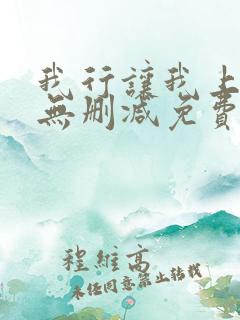 我行讓我上
無刪減免費
程維高
未经同意禁止转载